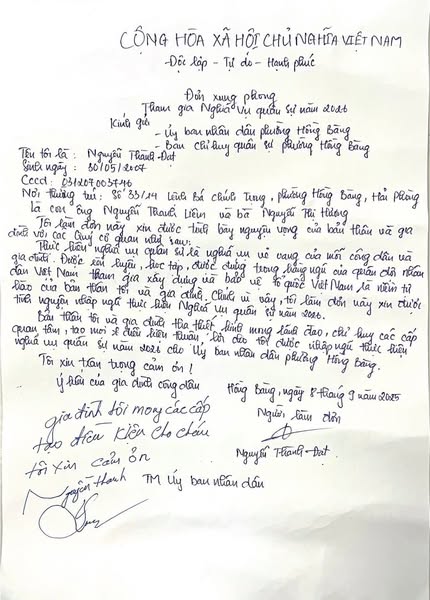 CỘNG HÒA XÃ HỘI CHỦ NGHĨA VIỆT NAM
Độc lập - Tự do - Hạnh phúc
Đơn xung phong
Tham gia Nghĩa Vụ quân sự năm 2026
Kính gửi
- Ủy ban nhân dân phường Hồng Bàng
- Ban chỉ huy quân sự phường Hồng Bàng
Tên tôi là : Nguyễn Thành Đạt
Sinh ngày : 30/05/2007
Cccd : 031207003746
Nơi thường trú : Số 33/14 Đinh Bá Chính Trung, phường Hồng Bàng, Hải Phòng
là con ông Nguyễn Thanh Liêm và bà Nguyễn Thị Hương
Tôi làm đơn này xin được trình bày nguyện vọng của bản thân và gia
đình với các Quý cơ quan như sau:
Thực hiện nghĩa vụ quân sự là nghĩa vụ vẻ vang của mỗi công dân và
gia đình. Được rèn luyện, học tập, được đứng trong hàng ngũ của quân đội nhân
dân Việt Nam tham gia xây dựng và bảo vệ tổ quốc Việt Nam là niềm tự
hào của bản thân tôi và gia đình. Chính vì vậy, tôi làm đơn này xin được
tình nguyện nhập ngũ thực hiện Nghĩa vụ quân sự năm 2026.
Bản thân tôi và gia đình tha thiết kính mong lãnh đạo, chỉ huy các cấp
quan tâm, tạo mọi điều kiện thuận lợi cho tôi được nhập ngũ thực hiện
nghĩa vụ quân sự năm 2026 cho Ủy ban nhân dân phường Hồng Bàng.
Tôi xin trân trọng cảm ơn !
Ý kiến của gia đình công dân
Hồng Bàng, ngày 8 tháng 9 năm 2025
Người làm đơn
gia đình tôi mong các cấp
tạo điều kiện cho cháu
tôi xin cảm ơn
Nguyễn Thành Đạt
Nguyễn Thanh
TM Ủy ban nhân dân